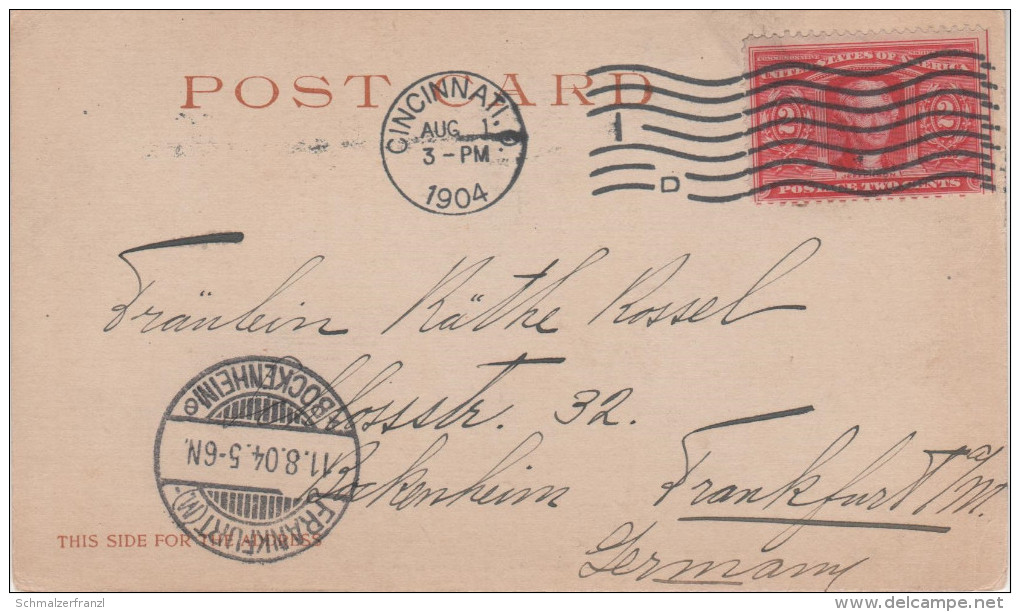 POST CARD
CINCINNATI, O.
AUG 1
3 - PM
1904
D
UNITED STATES OF AMERICA
2 2
POSTAGE TWO CENTS
Fräulein Käthe Rossel
Schlossstr. 32.
Bockenheim Frankfurt a/M.
Germany
FRANKFURT (M.)-
11.8.04.5-6N.
BOCKENHEIM
THIS SIDE FOR THE ADDRESS
Schmalzerfranzl
delcampe.net